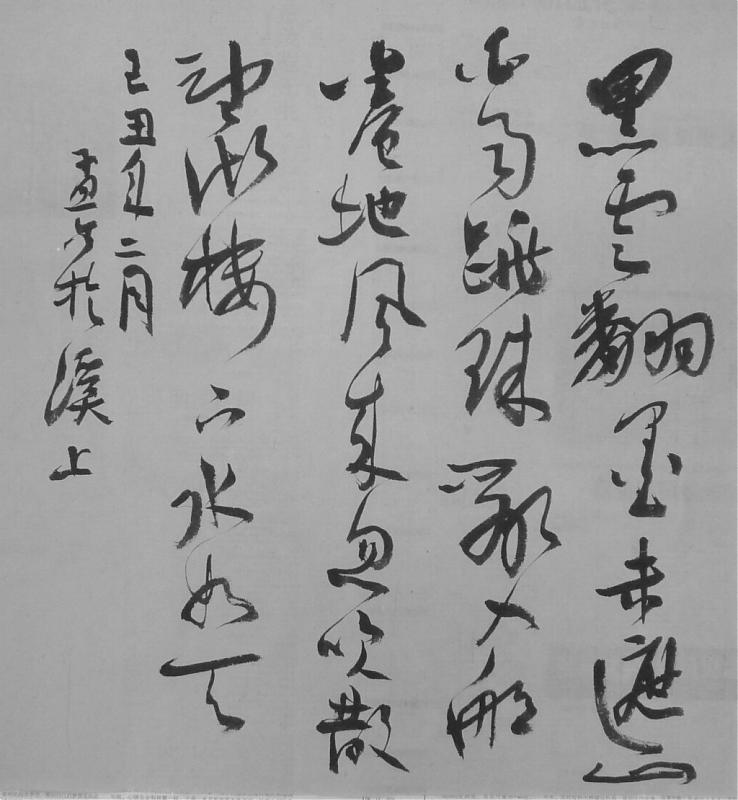 黑雲翻墨未遮山
白雨跳珠亂入船
捲地风来忽吹散
望湖樓下水如天
己丑年二月
於溪上